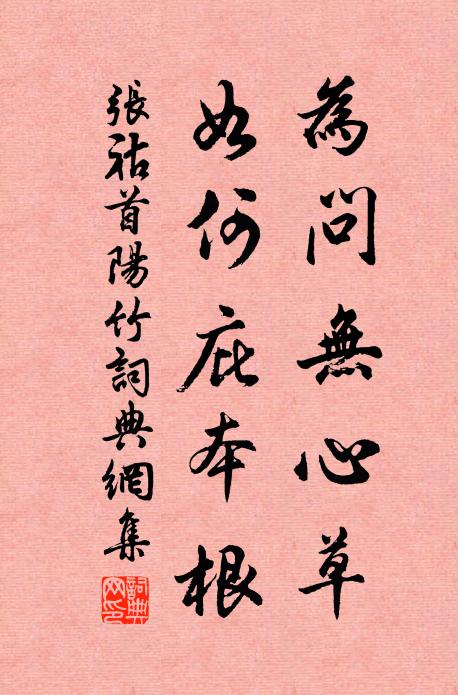 為問無心草
如何庇本根
張祜首陽竹詞典網集
詞典網印